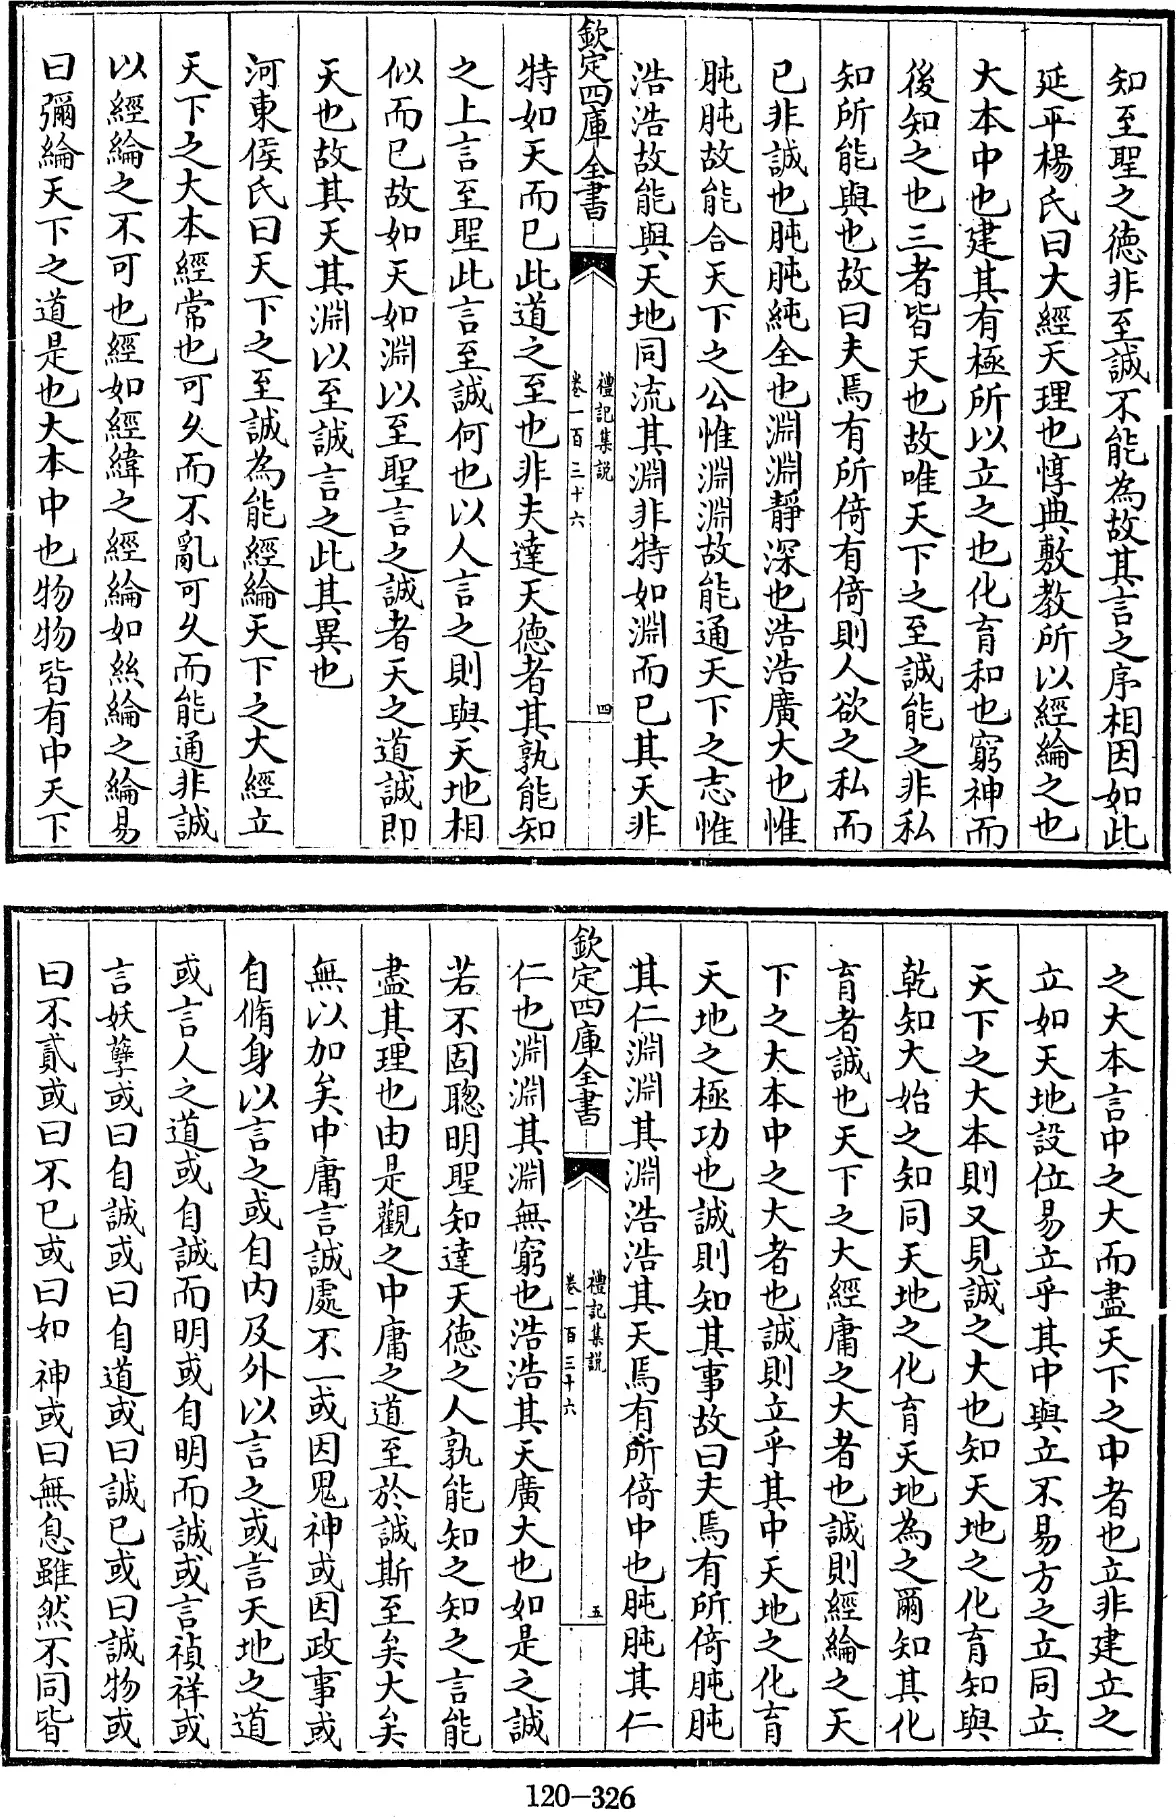 知至聖之德非至誠不能為故其言之序相因如此
延平楊氏曰大經天理也惇典敷教所以經綸之也
大本中也建其有極所以立之也化育和也窮神而
後知之也三者皆天也故唯天下之至誠能之非私
知所能與也故曰夫焉有所倚有倚則人欲之私而
已非誠也肫肫純全也淵淵靜深也浩浩廣大也惟
肫肫故能合天下之公惟淵淵故能通天下之志惟
浩浩故能與天地同流其淵非特如淵而已其天非
欽定四庫全書
禮記集說
卷一百三十六
四
特如天而已此道之至也非夫達天德者其孰能知
之上言至聖此言至誠何也以人言之則與天地相
似而已故如天如淵以至聖言之誠者天之道誠即
天也故其天其淵以至誠言之此其異也
河東侯氏曰天下之至誠為能經綸天下之大經立
天下之大本經常也可久而不亂可久而能通非誠
以經綸之不可也經如經緯之經綸如絲綸之綸易
曰彌綸天下之道是也大本中也物物皆有中天下
之大本言中之大而盡天下之中者也立非建立之
立如天地設位易立乎其中與立不易方之立同立
天下之大本則又見誠之大也知天地之化育知與
乾知大始之知同天地之化育天地為之爾知其化
育者誠也天下之大經庸之大者也誠則經綸之天
下之大本中之大者也誠則立乎其中天地之化育
天地之極功也誠則知其事故曰夫焉有所倚肫肫
其仁淵淵其淵浩浩其天焉有所倚中也肫肫其仁
欽定四庫全書
禮記集說
卷一百三十六
五
仁也淵淵其淵無窮也浩浩其天廣大也如是之誠
若不固聰明聖知達天德之人孰能知之知之言能
盡其理也由是觀之中庸之道至於誠斯至矣大矣
無以加矣中庸言誠處不一或因鬼神或因政事或
自脩身以言之或自内及外以言之或言天地之道
或言人之道或自誠而明或自明而誠或言禎祥或
言妖孽或曰自誠或曰自道或曰誠已或曰誠物或
曰不貳或曰不已或曰如神或曰無息雖然不同皆
120-326